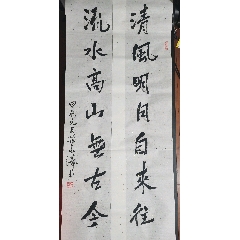 清風明月自來往
流水高山無古今